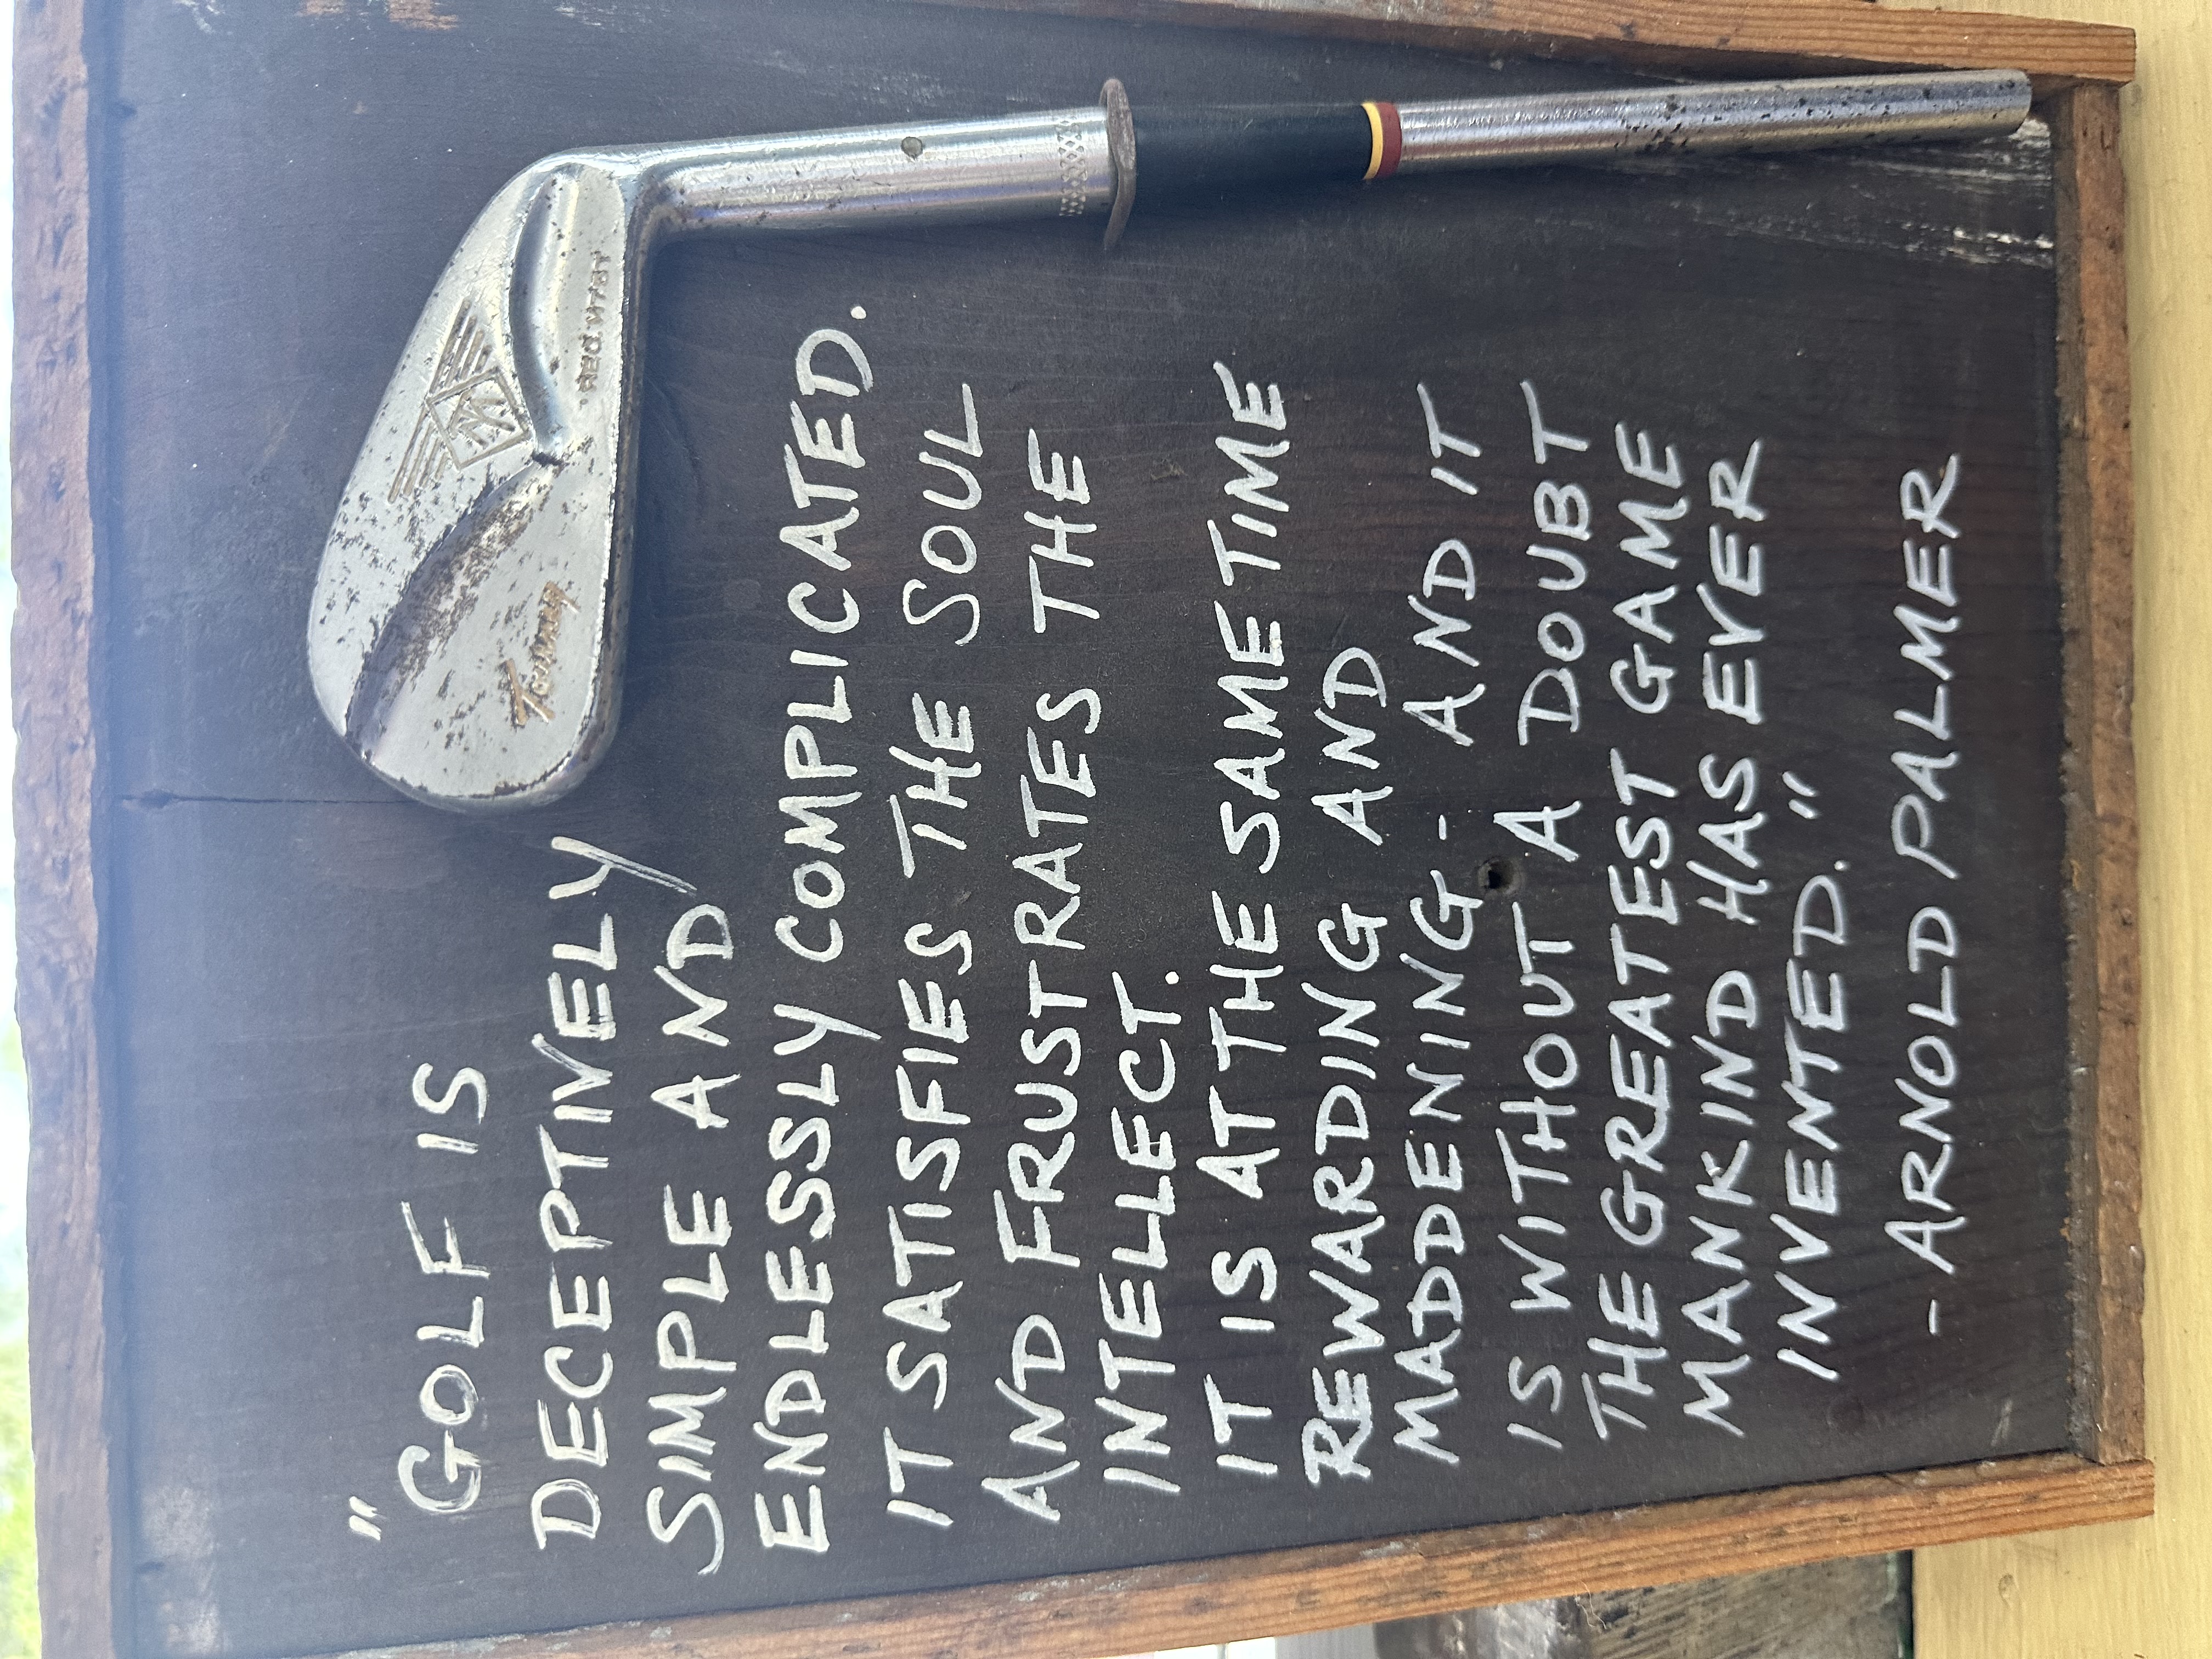 "GOLF IS
DECEPTIVELY
SIMPLE AND
ENDLESSLY COMPLICATED.
IT SATISFIES THE SOUL
AND FRUSTRATES THE
INTELLECT.
IT IS AT THE SAME TIME
REWARDING AND
MADDENING - AND IT
IS WITHOUT A DOUBT
THE GREATEST GAME
MANKIND HAS EVER
INVENTED."
- ARNOLD PALMER
Tommy
REG.